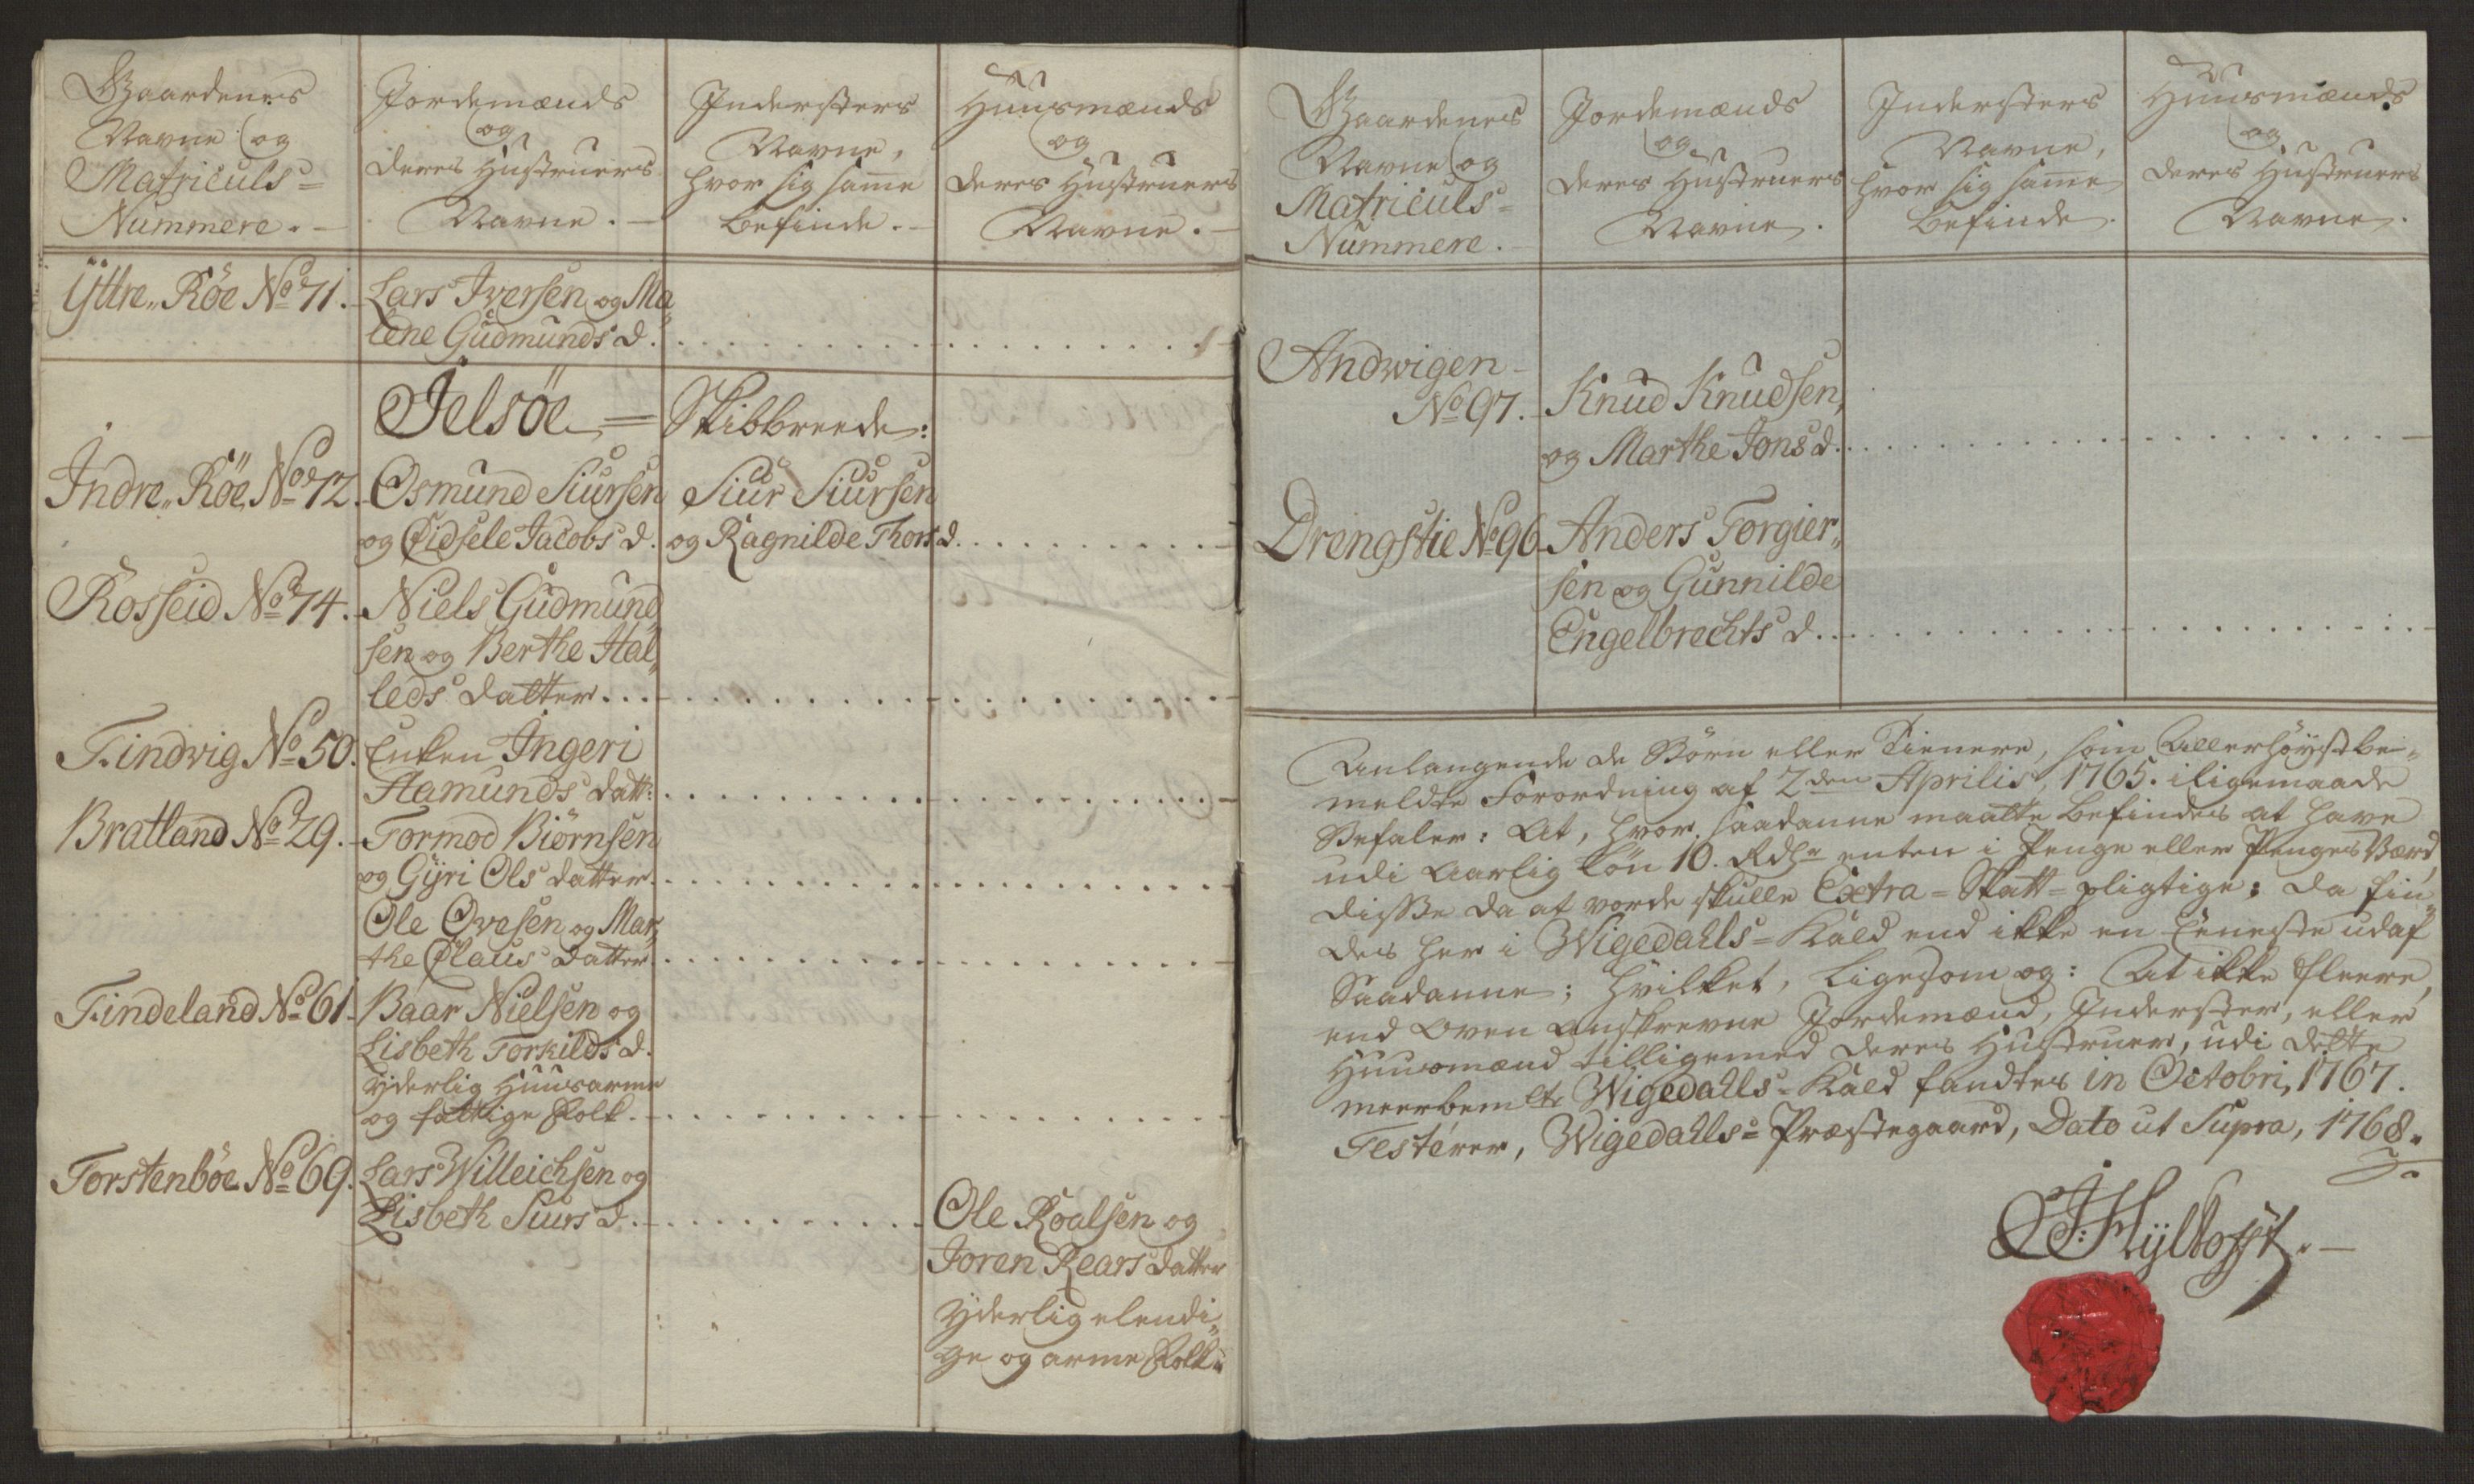 Gaardenes
Navne og
Matriculs=
Nummere.
Jordemænds
og
deres Hustruers
Navne.
Indersters
Navne,
hvor sig same
befinde.
Huusmænds
og
deres Hustruers
Navne.
Ÿttre„ Röe No 71.
Lars Iversen og Ma„
lene Gudmunds d.
Jelsöe = Skibbreede:
Indre„ Röe No 72.
Osmund Siursen
og Eidsele Jacobs d.
Siur Siursen
og Ragnilde Thors d.
Rosseid No 74.
Niels Gudmund„
sen og Berthe Hal„
leds datter...
Tindvig No 50.
Enken Ingeri
Aamunds datt:
Bratland No 29.
Tormod Biörnsen
og Gÿri Ols datter.
Ole Ovesen og Mar„
the Olaus datter.
Tindeland No 61.
Baar Nielsen og
Lisbeth Torkilds d.
Ÿderlig Huusarme
og fattige Folk.
Torstenböe No 69.
Lars Willeichsen og
Lisbeth Siurs d.
Ole Roalsen og
Joren Rears datter
Ÿderlig elendi„
ge og arme Folk.
Gaardenes
Navne og
Matriculs=
Nummere.
Jordemænds
og
deres Hustruers
Navne.
Indersters
Navne,
hvor sig same
befinde.
Huusmænds
og
deres Hustruers
Navne.
Andwigen
No 97.
Knud Knudsen,
og Marthe Jons d.
Drengstie No 96
Anders Torgier„
sen og Gunnilde
Engelbrechts d.
Anlangende de Börn eller Tienere, som Allerhöÿstbe=
meldte Forordning af 2den Aprilis, 1765. iligemaade
Befaler: At, hvor saadanne maatte befindes at have
udi Aarlig Lön 10. Rdlr enten i Penge eller Penges Værd,
disse da at vorde skulle Extra=Skatt=pligtige: da fin„
des her i Wigedahls=Kald end ikke en Eeneste udaf
Saadanne; hvilket, ligesom og: At ikke fleere,
end Oven anskrevne Jordemænd, Inderster, eller
Huusmænd tilligemed deres Hustruer, udi dette
meerbemlte Wigedahls=Kald fandtes in Octobri, 1767.
Testérer, Wigedahls=Præstegaard, Dato ut Supra, 1768.